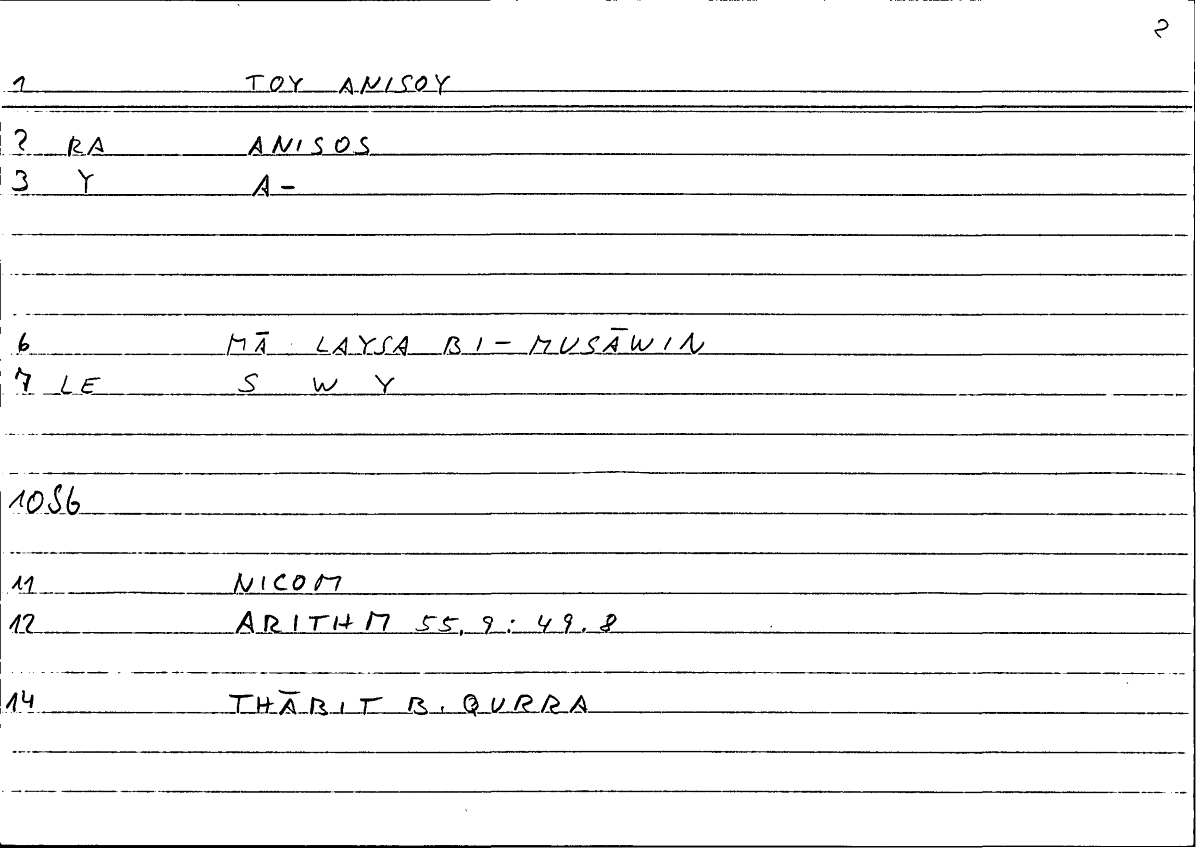 2
1 TOY ANISOY
2 RA ANISOS
3 Y A-
6 MĀ LAYSA BI-MUSĀWIN
7 LE S W Y
10 S6
11 NICOM
12 ARITHM 55,9: 49.8
14 THĀBIT B. QURRA